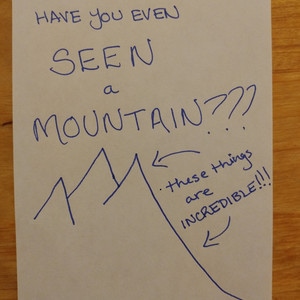 HAVE YOU EVEN
SEEN
a
MOUNTAIN???
these things
are
INCREDIBLE!!!